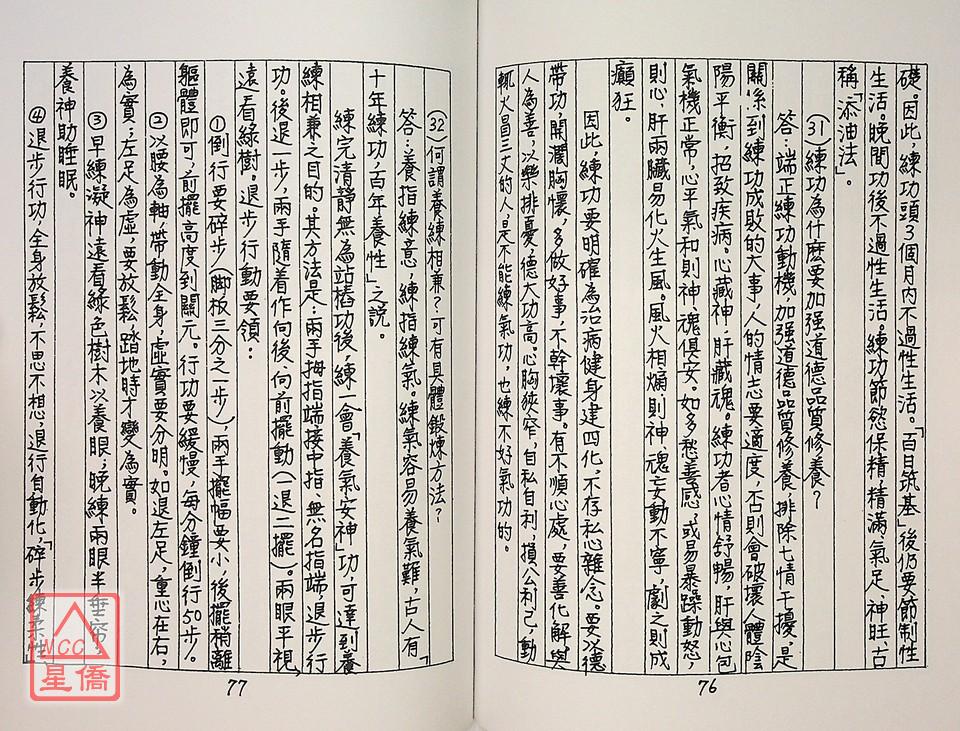 礎。因此,練功頭3個月內不過性生活。「百日筑基」後仍要節制性
生活。晚間功後不過性生活。練功節慾保精,精滿、氣足、神旺、古
稱「添油法」。
(31)練功為什麼要加强道德品質修養?
答:端正練功動機,加强道德品質修養,排除七情干擾,是
關係到練功成敗的大事,人的情志要適度,否則會破壞人體陰
陽平衡,招致疾病。心藏神,肝藏魂。練功者心情舒暢,肝與心包
氣機正常,心平氣和則神魂俱安。如多愁善感,或易暴躁動怒,
則心,肝兩臟易化火生風。風火相煽,則神魂妄動不寧,劇之則成
癲狂。
因此,練功要明確為治病健身建四化,不存私心雜念。要以德
帶功,開濶胸懷,多做好事,不幹壞事。有不順心處,要善化解,與
人為善,以樂排憂,德大功高。心胸狹窄,自私自利,損公利己,動
輒火冒三丈的人,是不能練氣功,也練不好氣功的。
76
(32)何謂養練相兼?可有具體鍛煉方法?
答:養指練意,練指練氣。練氣容易養氣難,古人有「
十年練功,百年養性」之說。
練完清靜無為站樁功後,練一會「養氣安神」功可達到養
練相兼之目的。其方法是:兩手拇指端接中指、無名指端,退步行
功。後退一步,兩手隨着作向後、向前擺動(一退二擺)。兩眼平視,
遠看綠樹。退步行動要領:
①倒行要碎步(脚板三分之一步),兩手擺幅要小,後擺稍離
軀體即可,前擺高度到關元。行功要緩慢,每分鐘倒行50步。
②以腰為軸帶動全身,虛實要分明。如退左足,重心在右,
為實;左足為虛,要放鬆,踏地時才變為實。
③早練凝神遠看綠色樹木以養眼;晚練兩眼半垂帘,
養神助睡眠。
④退步行功,全身放鬆,不思不想,退行自動化,「碎步練柔性」
77
WCC
星僑